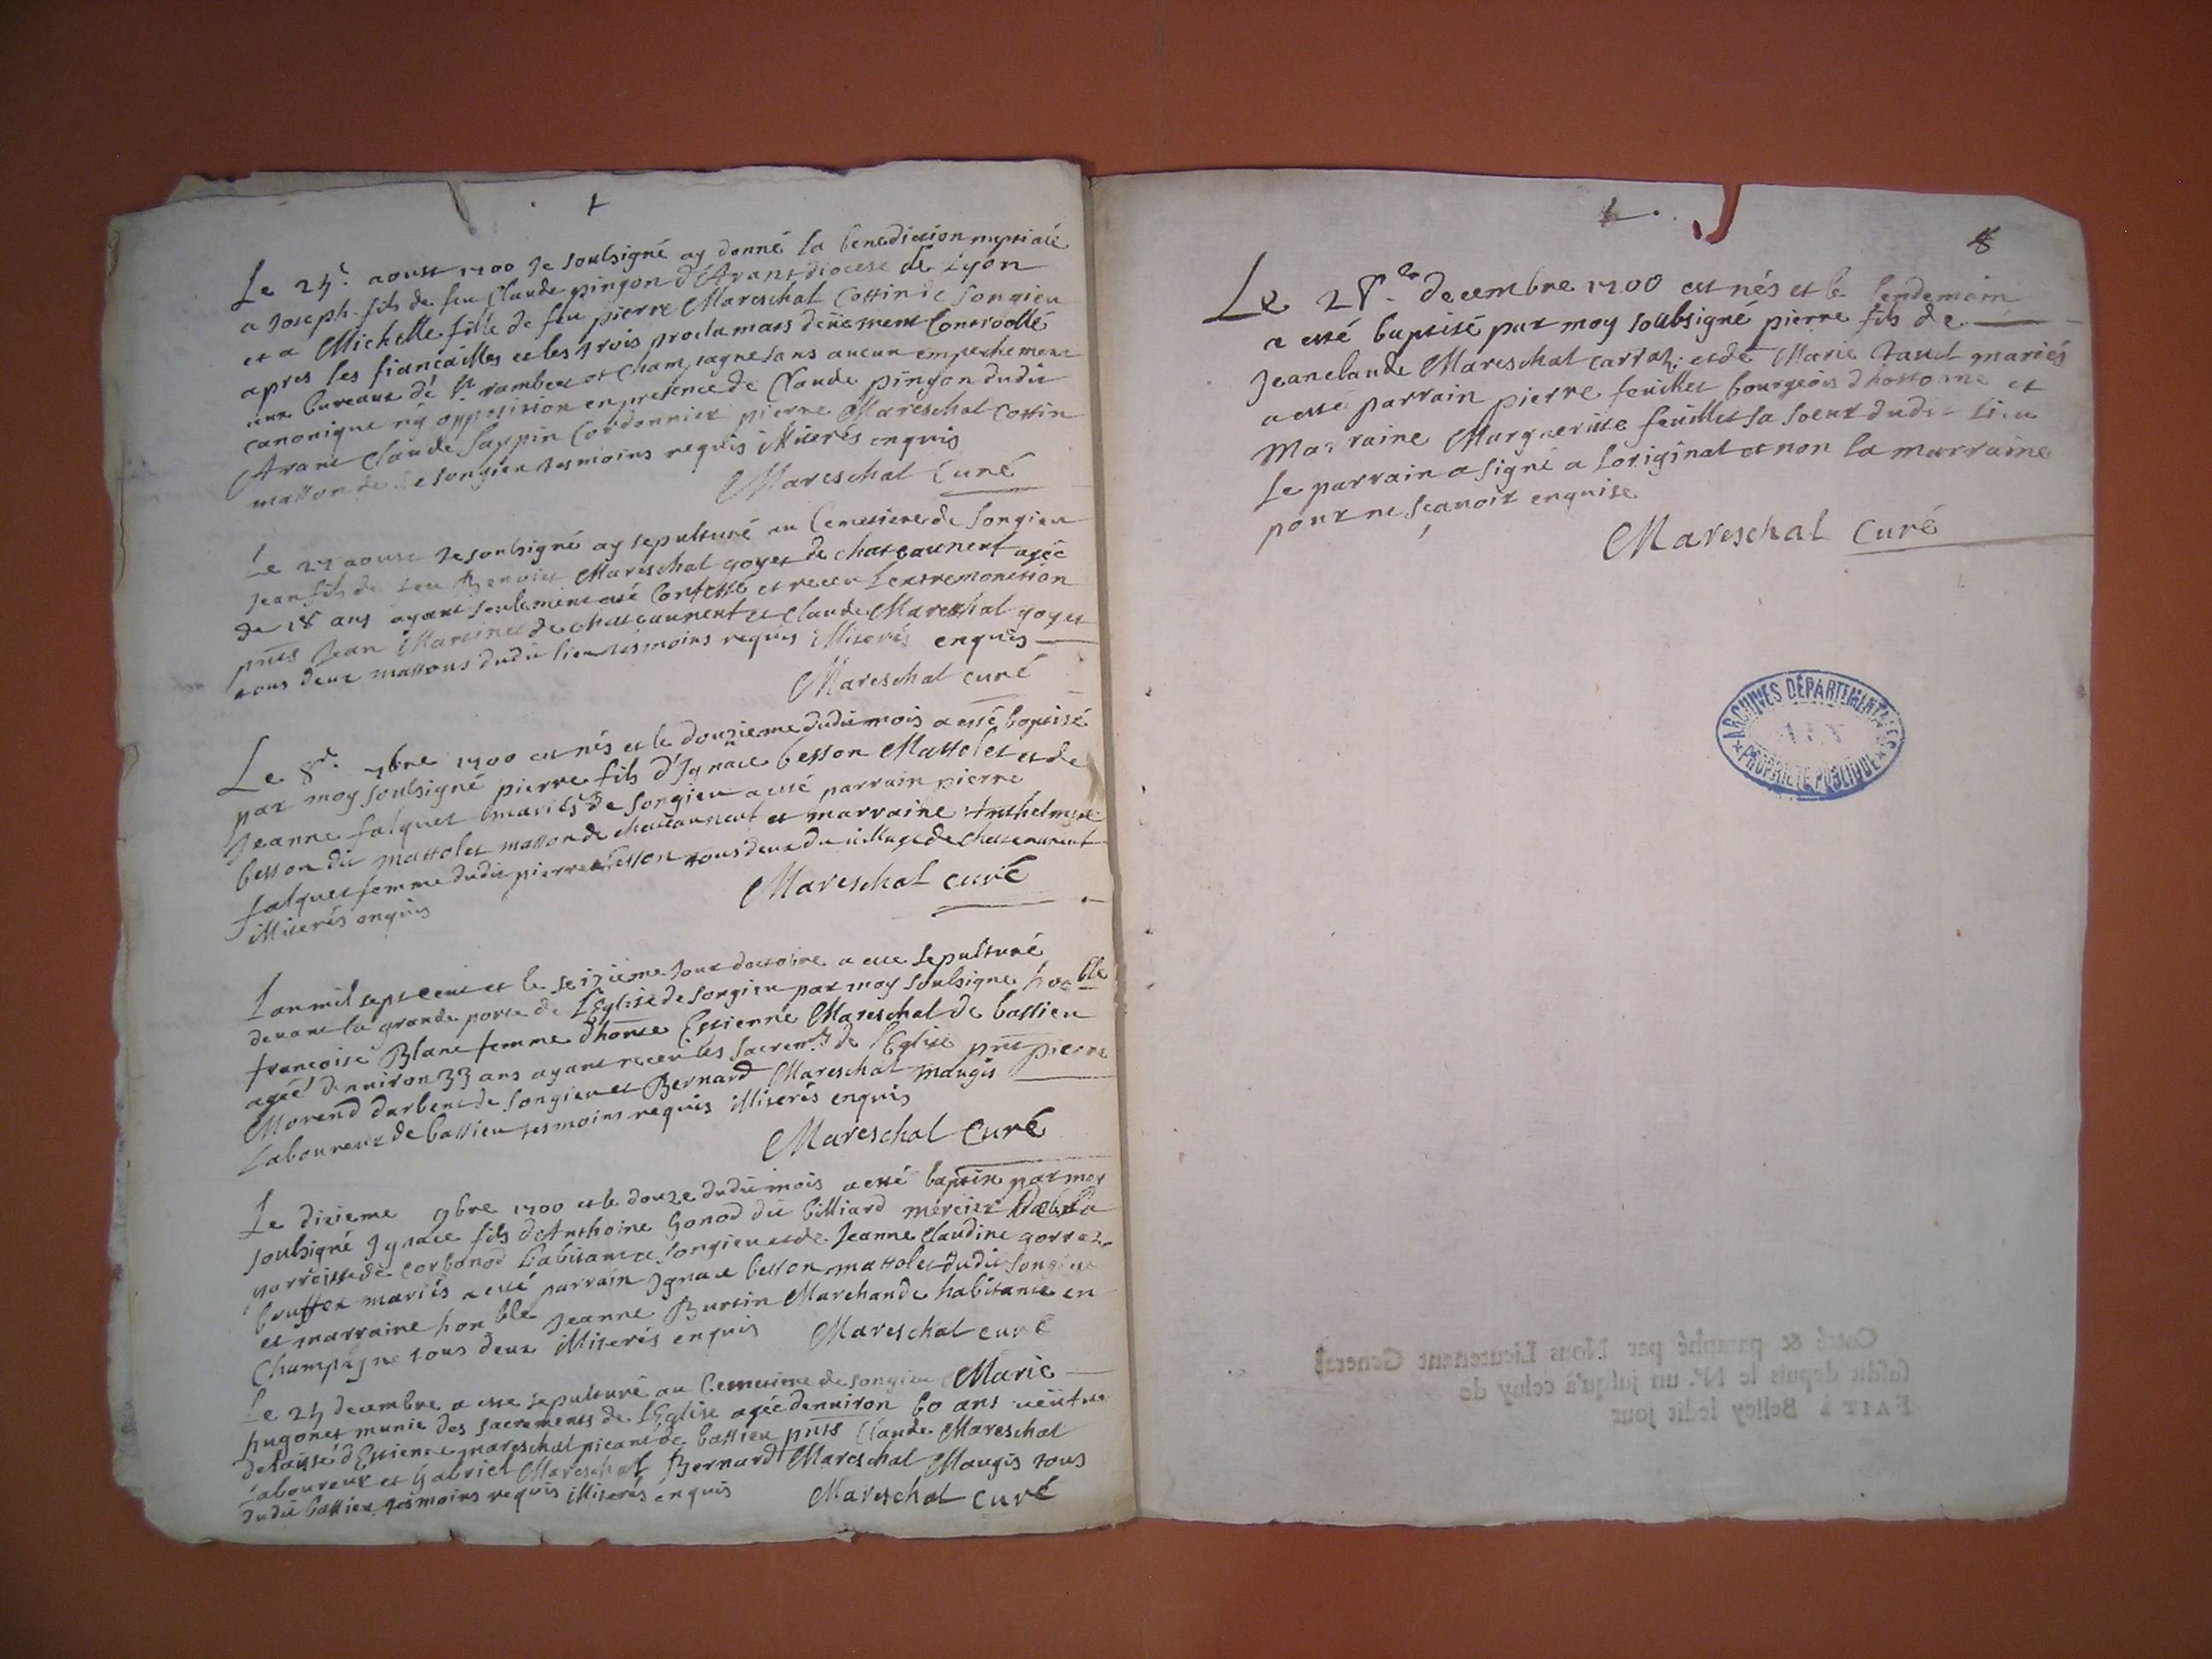 Le 24e. aoust 1700 Je soubsigné ay donné la benediction nuptiale
a Joseph fils de feu Claude pingon d'Arant diocese de Lyon
et a Michelle fille de feu pierre Mareschal Cottin de songieu
apres les fiancailles et les trois proclamaos deüement Controollé
aux bureaux de St rambert et Champagne sans aucun empechement
canonique ny opposition en presence de Claude pingon dudit
Arant Claude Cordonnier pierre Mareschal Cottin
masson de songieu tesmoins requis illiterés enquis
Mareschal Curé
Le 27 aoust Je soubsigné ay sepulturé au Cemetiere de songieu
Jean fils de feu Benoist Mareschal goyet de chateauneuf agée
de 18 ans ayant seulement esté Confessé et receu l'extremonction
pnts Jean Martinet de chateauneuf et Claude Mareschal goyet
tous deux massons dudit lieu tesmoins requis illiterés enquis
Mareschal curé
Le 8e. 7bre 1700 est nés et le douzieme dudit mois a esté baptisé
par moy soubsigné pierre fils d'Ignace besson Mattolet et de
Jeanne falquet mariés de songieu a esté parrain pierre
besson dit mattolet masson de chateauneuf et marraine Anthelmyne
falquet femme dudit pierre besson tous deux du village de chateauneuf
illiterés enquis
Mareschal curé
Lan mil sept cent et le seizieme Jour doctobre a esté sepulturé
devant la grande porte de l'Eglise de songieu par moy soubsigné honble
francoise Blanc femme dhonte Estienne Mareschal de bassieu
agée denviron 33 ans ayant receu les sacremts de l'Eglise pnt pierre
Morend darbent de songieu et Bernard Mareschal maugis
Laboureur de bassieu tesmoins requis illiterés enquis
Mareschal Curé
Le dixieme 9bre 1700 et le douze dudit mois a esté baptise par moy
soubsigné Ignace fils d'Anthoine Gonod dit billiard mercier de la
parroisse de corbonod habitant a songieu et de Jeanne Claudine gorraz
bruffer mariés a esté parrain Ignace besson mattolet dudit songieu
et marraine honble Jeanne Burtin Marchande habitante en
Champagne tous deux illiterés enquis Mareschal curé
Le 24 decembre a esté sepulturé au Cemetiere de songieu Marie
hugonet munie des sacrements de l'Eglise agée denviron 60 ans veüfve
delaissé d'Estienne mareschal picant de bassieu pnts Claude Mareschal
Laboureur et Gabriel Mareschal Bernard Mareschal Maugis tous
dudit bassieu tesmoins requis illiterés enquis Mareschal curé
8
Le 28.e decembre 1700 est nés et le lendemain
a esté baptisé par moy soubsigné pierre fils de
Jeanclaude Mareschal cartaz et de Marie mariés
a esté parrain pierre feuillet bourgeois dhostonne et
Marraine Margueritte feuillet sa soeur dudit lieu
Le parrain a signé a Loriginal et non la marraine
pour ne scavoir enquise
Mareschal Curé
ARCHIVES DÉPARTEMENTALES
AIN
PROPRIÉTÉ PUBLIQUE
Cotté & paraphé par Nous Lieutenant General
susdit depuis le No. un jusqu'à celuy de
FAIT à Belley ledit jour